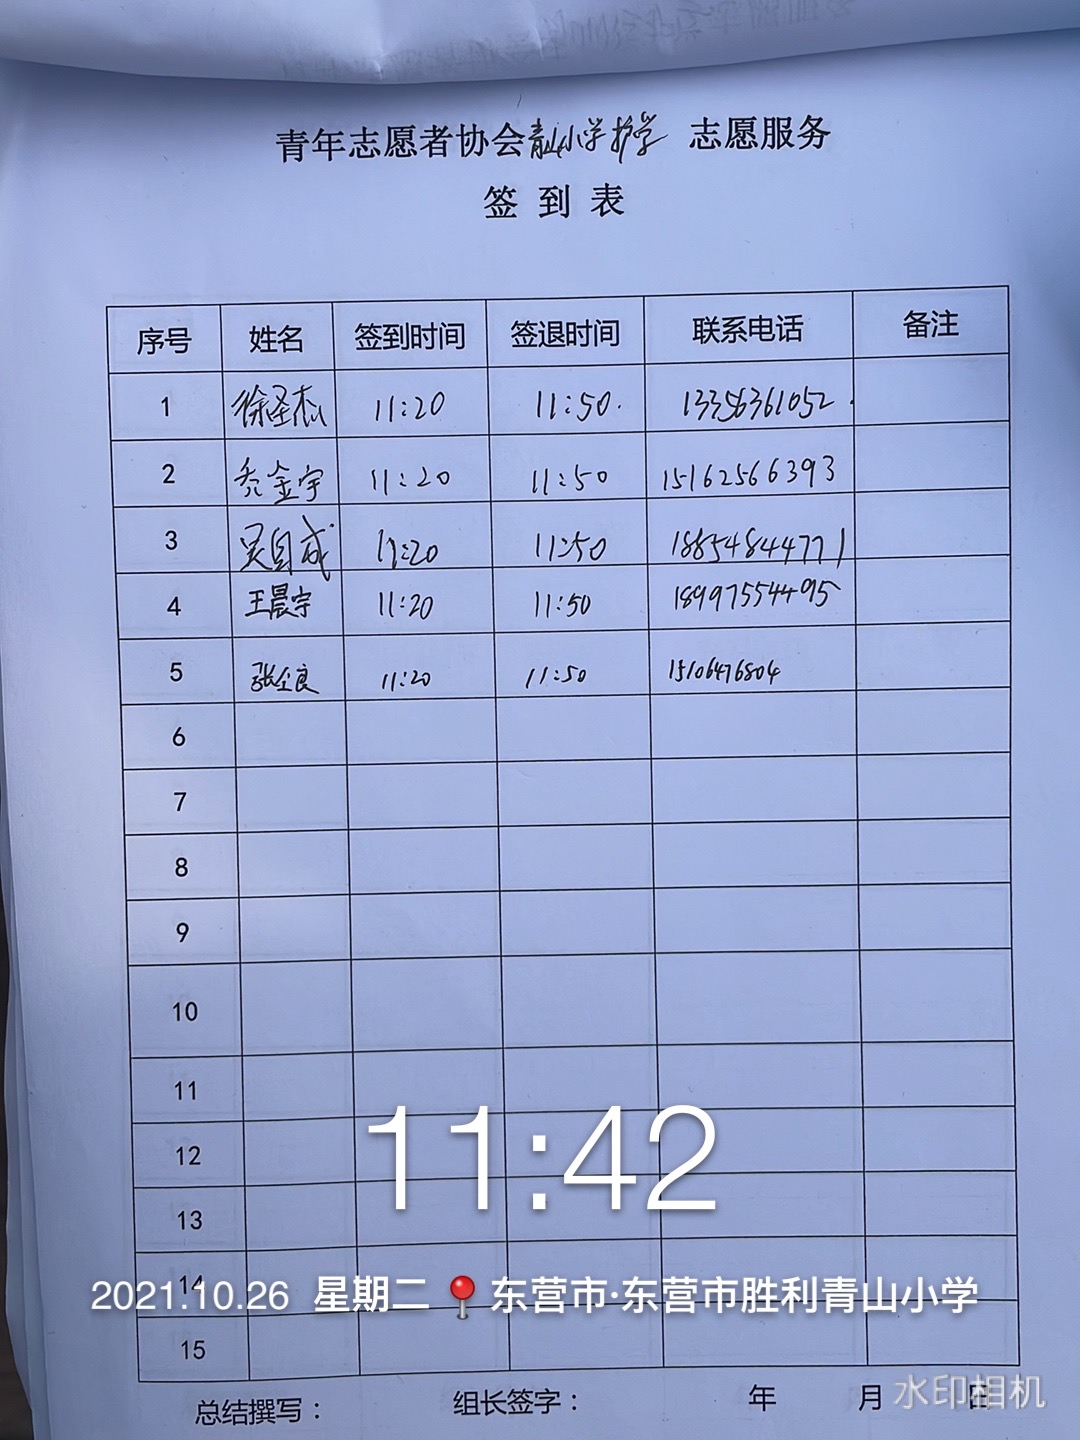 青年志愿者协会青山小学护学 志愿服务
签到表
序号 姓名 签到时间 签退时间 联系电话 备注
1 徐圣杰 11:20 11:50. 13356361052.
2 金宇 11:20 11:50 15162566393
3 吴自成 11:20 11:50 18854844771
4 王晨宇 11:20 11:50 18997554495
5 张全良 11:20 11:50 15106476804
6
7
8
9
10
11
11:42
12
13
14
2021.10.26 星期二 东营市·东营市胜利青山小学
15
总结撰写： 组长签字： 年 月 日
水印相机